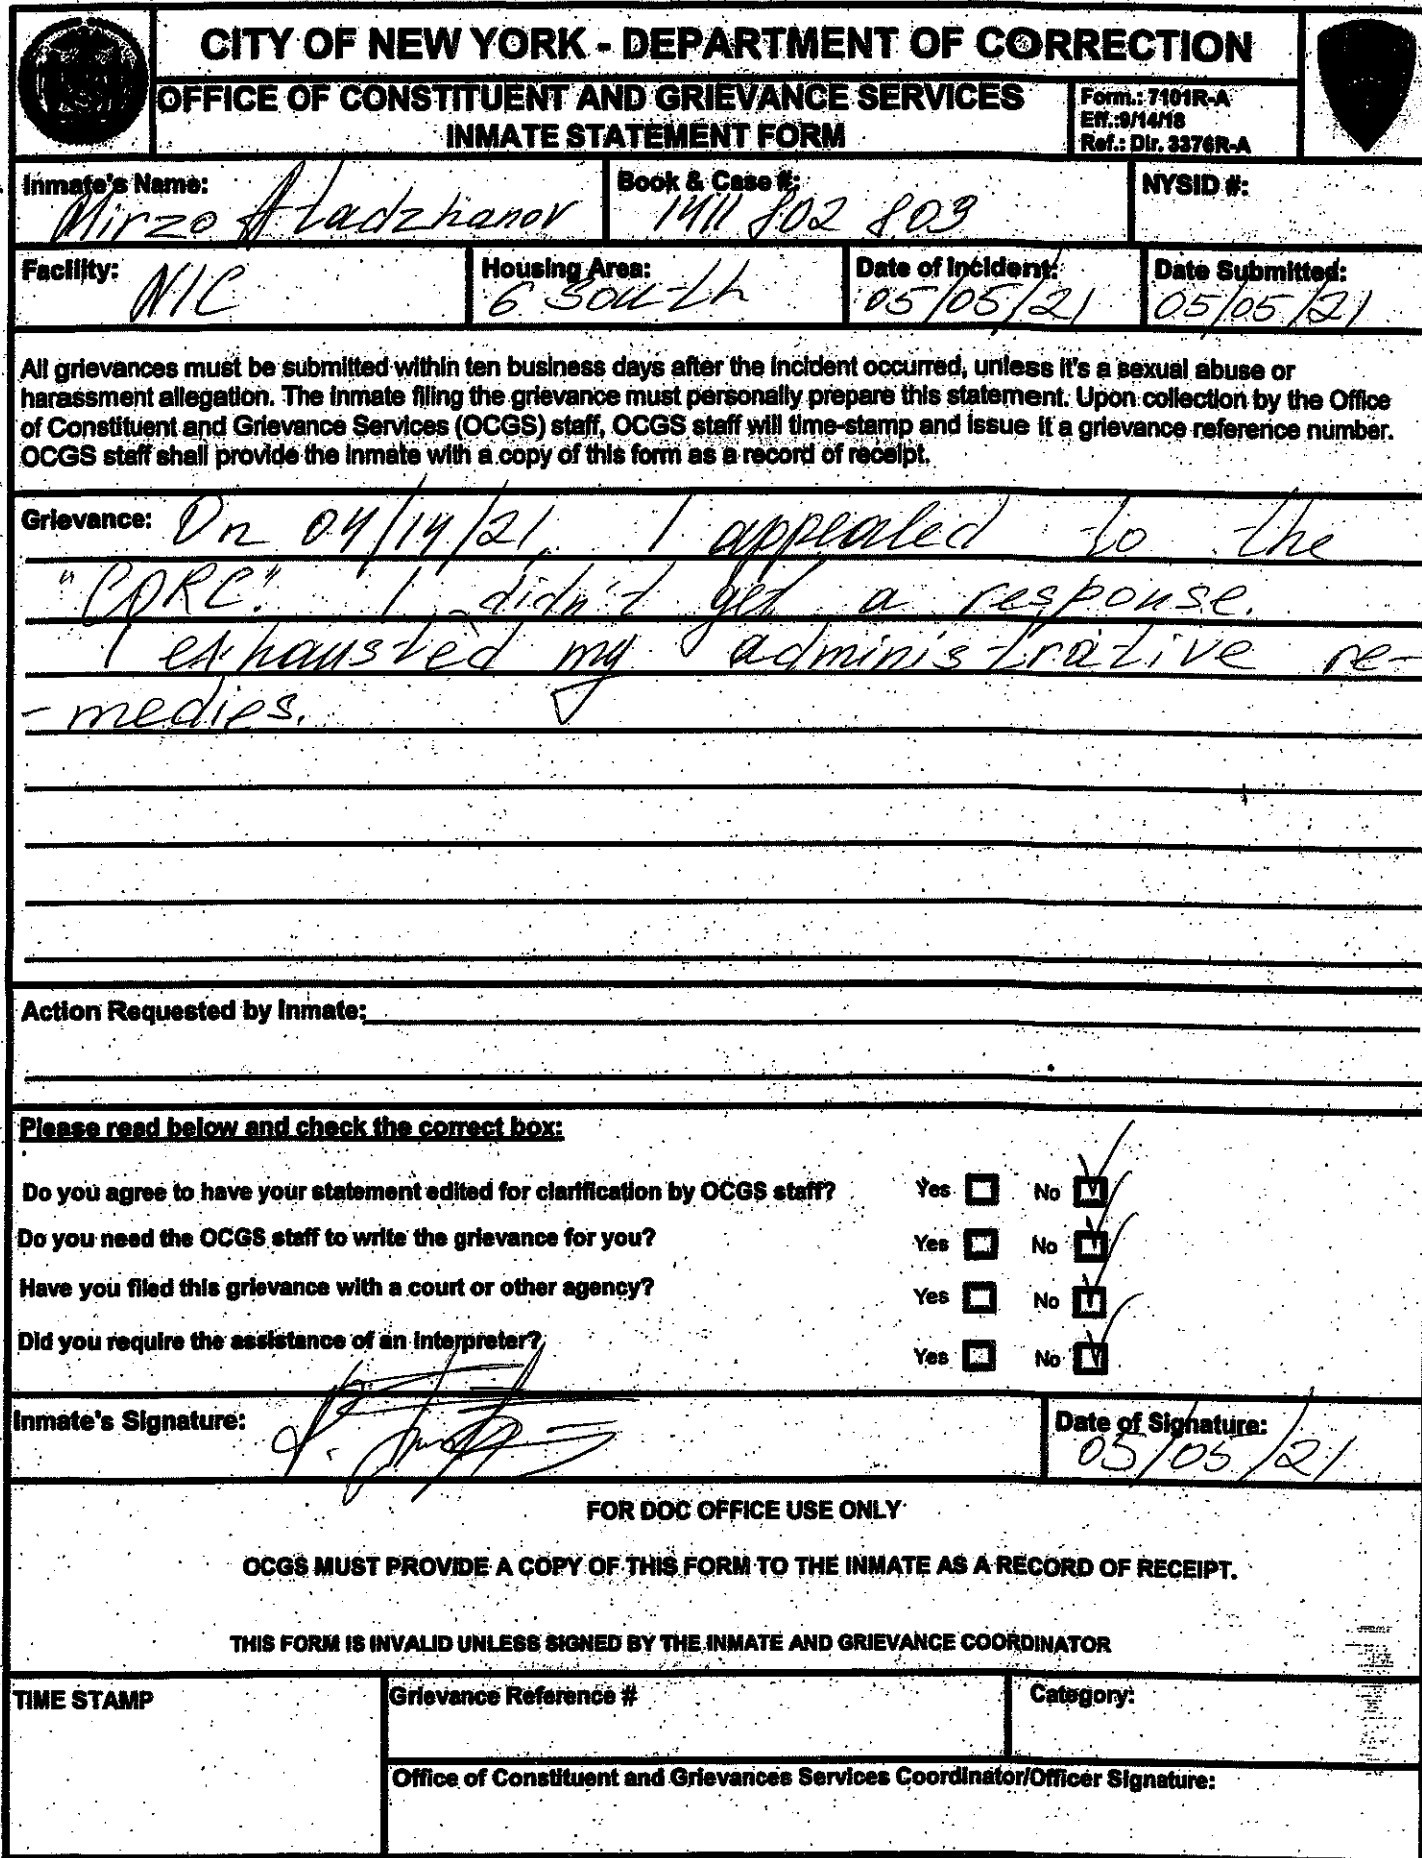 CITY OF NEW YORK - DEPARTMENT OF CORRECTION
OFFICE OF CONSTITUENT AND GRIEVANCE SERVICES
INMATE STATEMENT FORM
Form.: 7101R-A
Eff.:9/14/18
Ref.: Dir. 3376R-A
Inmate's Name: Mirzo Atadzhanov
Book & Case #: 1411 802 803
NYSID #:
Facility: NIC
Housing Area: 6 South
Date of Incident: 05/05/21
Date Submitted: 05/05/21
All grievances must be submitted within ten business days after the incident occurred, unless it's a sexual abuse or
harassment allegation. The inmate filing the grievance must personally prepare this statement. Upon collection by the Office
of Constituent and Grievance Services (OCGS) staff, OCGS staff will time-stamp and issue it a grievance reference number.
OCGS staff shall provide the inmate with a copy of this form as a record of receipt.
Grievance: On 04/14/21, I appealed to the
"CORC." I didn't get a response.
I exhausted my administrative re-
- medies.
Action Requested by Inmate:
Please read below and check the correct box:
Do you agree to have your statement edited for clarification by OCGS staff? Yes No
Do you need the OCGS staff to write the grievance for you? Yes No
Have you filed this grievance with a court or other agency? Yes No
Did you require the assistance of an interpreter? Yes No
Inmate's Signature:
Date of Signature: 05/05/21
FOR DOC OFFICE USE ONLY
OCGS MUST PROVIDE A COPY OF THIS FORM TO THE INMATE AS A RECORD OF RECEIPT.
THIS FORM IS INVALID UNLESS SIGNED BY THE INMATE AND GRIEVANCE COORDINATOR
TIME STAMP
Grievance Reference #
Category:
Office of Constituent and Grievances Services Coordinator/Officer Signature: